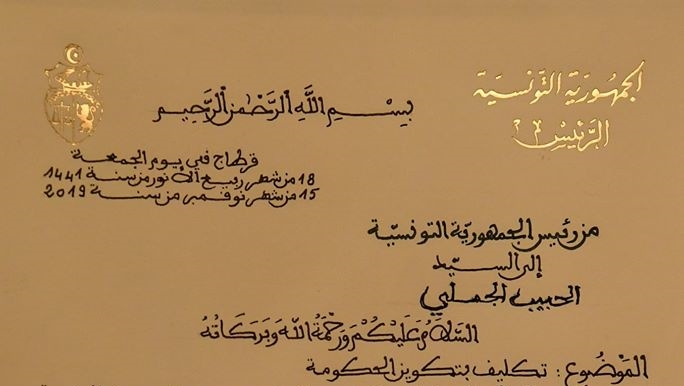 الجمهورية التونسية
الرئيس
بِسْمِ اللَّهِ الرَّحْمٰنِ الرَّحِيمِ
قرطاج في يوم الجمعة
18 من شهر ربيع الأنور من سنة 1441
15 من شهر نوفمبر من سنة 2019
من رئيس الجمهورية التونسية
إلى السيّد
الحبيب الجملي
السَّلَامُ عَلَيْكُمْ وَرَحْمَةُ اللَّهِ وَبَرَكَاتُهُ
المَوْضُوع : تكليف بتكوين الحكومة